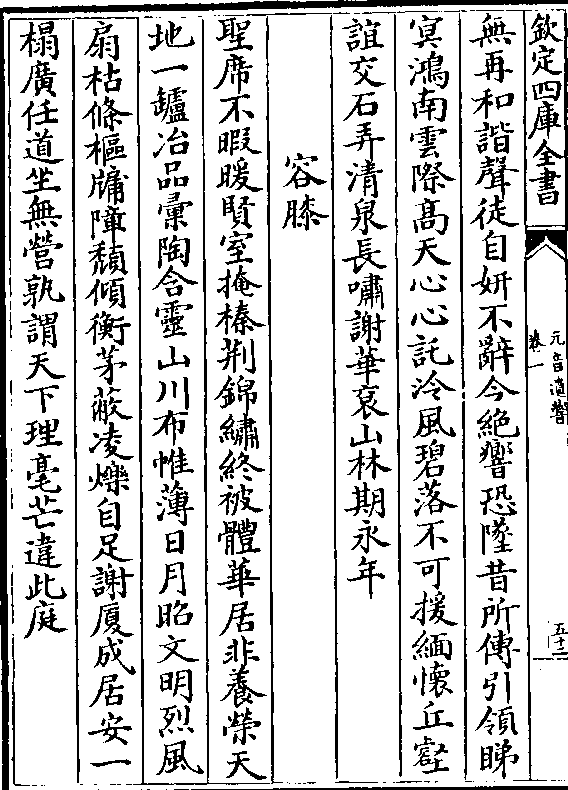 欽定四庫全書
元音遺響
卷一
五十二
無再和諧聲徒自妍不辭今絕響恐墜昔所傳引領睇
㝠鴻南雲際髙天心心託泠風碧落不可援緬懷丘壑
誼交石弄清泉長嘯謝華衮山林期永年
容膝
聖席不暇暖賢室掩榛荆錦繡終被體華居非養榮天
地一鑪冶品彚陶含靈山川布帷薄日月昭文明烈風
扇枯條樞牗障頽傾衡茅蔽凌爍自足謝厦成居安一
榻廣任道坐無營孰謂天下理毫芒違此庭